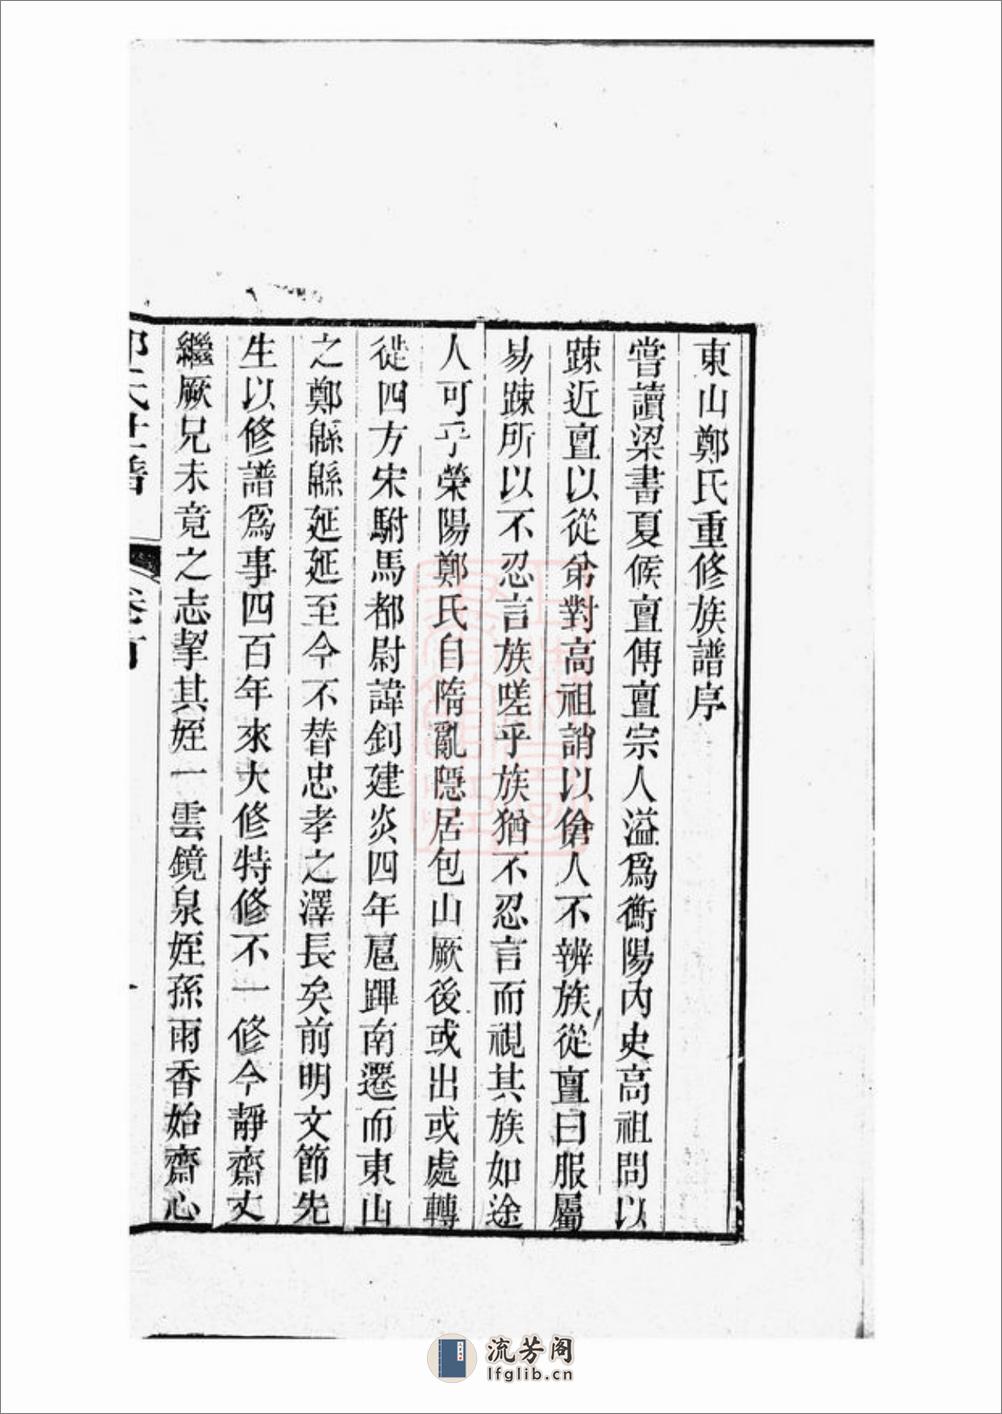 東山鄭氏重修族譜序
嘗讀梁書夏候亶傳亶宗人溢爲衡陽內史高祖問以
踈近亶以從弟對高祖誚以傖人不辨族從亶曰服屬
易踈所以不忍言族嗟乎族猶不忍言而視其族如途
人可乎滎陽鄭氏自隋亂隱居包山厥後或出或處轉
徙四方宋駙馬都尉諱釗建炎四年扈蹕南遷而東山
之鄭緜緜延延至今不替忠孝之澤長矣前明文節先
生以修譜爲事四百年來大修特修不一修今靜齋丈
繼厥兄未竟之志挈其姪一雲鏡泉姪孫雨香始齋心
氏世譜
卷首
一
流芳阁
lfglib.cn